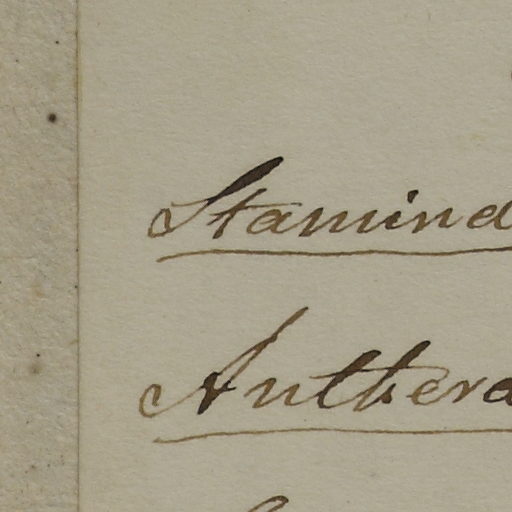 Stamina
Anthera